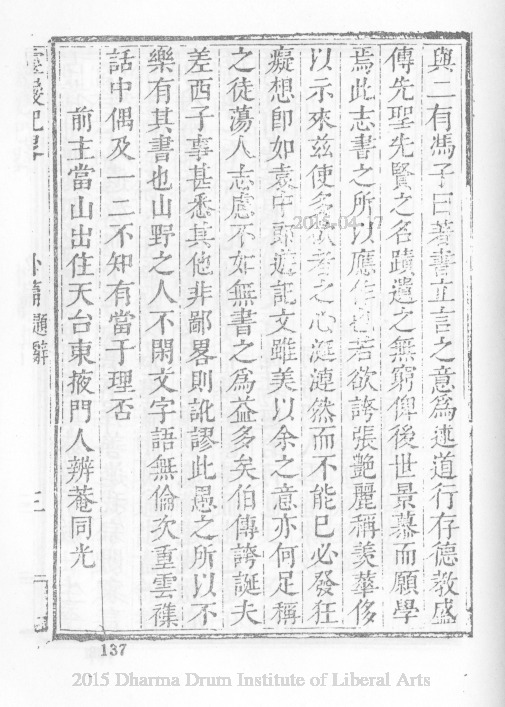 與二有馮子曰著書立言之意爲述道行存德教盛
傳先聖先賢之名蹟遺之無窮俾後世景慕而願學
焉此志書之所以應作也若欲誇張艷麗稱羡華侈
以示來茲使多欲者之心涎漣然而不能已必發狂
癡想即如袁中郎遊記文雖美以余之意亦何足稱
之徒蕩人志慮不如無書之爲益多矣伯傳誇誕夫
差西子事甚悉其他非鄙畧則訛謬此愚之所以不
樂有其書也山野之人不閑文字語無倫次重雲襍
話中偶及一二不知有當于理否
前主當山出住天台東掖門人辨菴同光
外篇 題辭
三
137
2015 Dharma Drum Institute of Liberal Arts